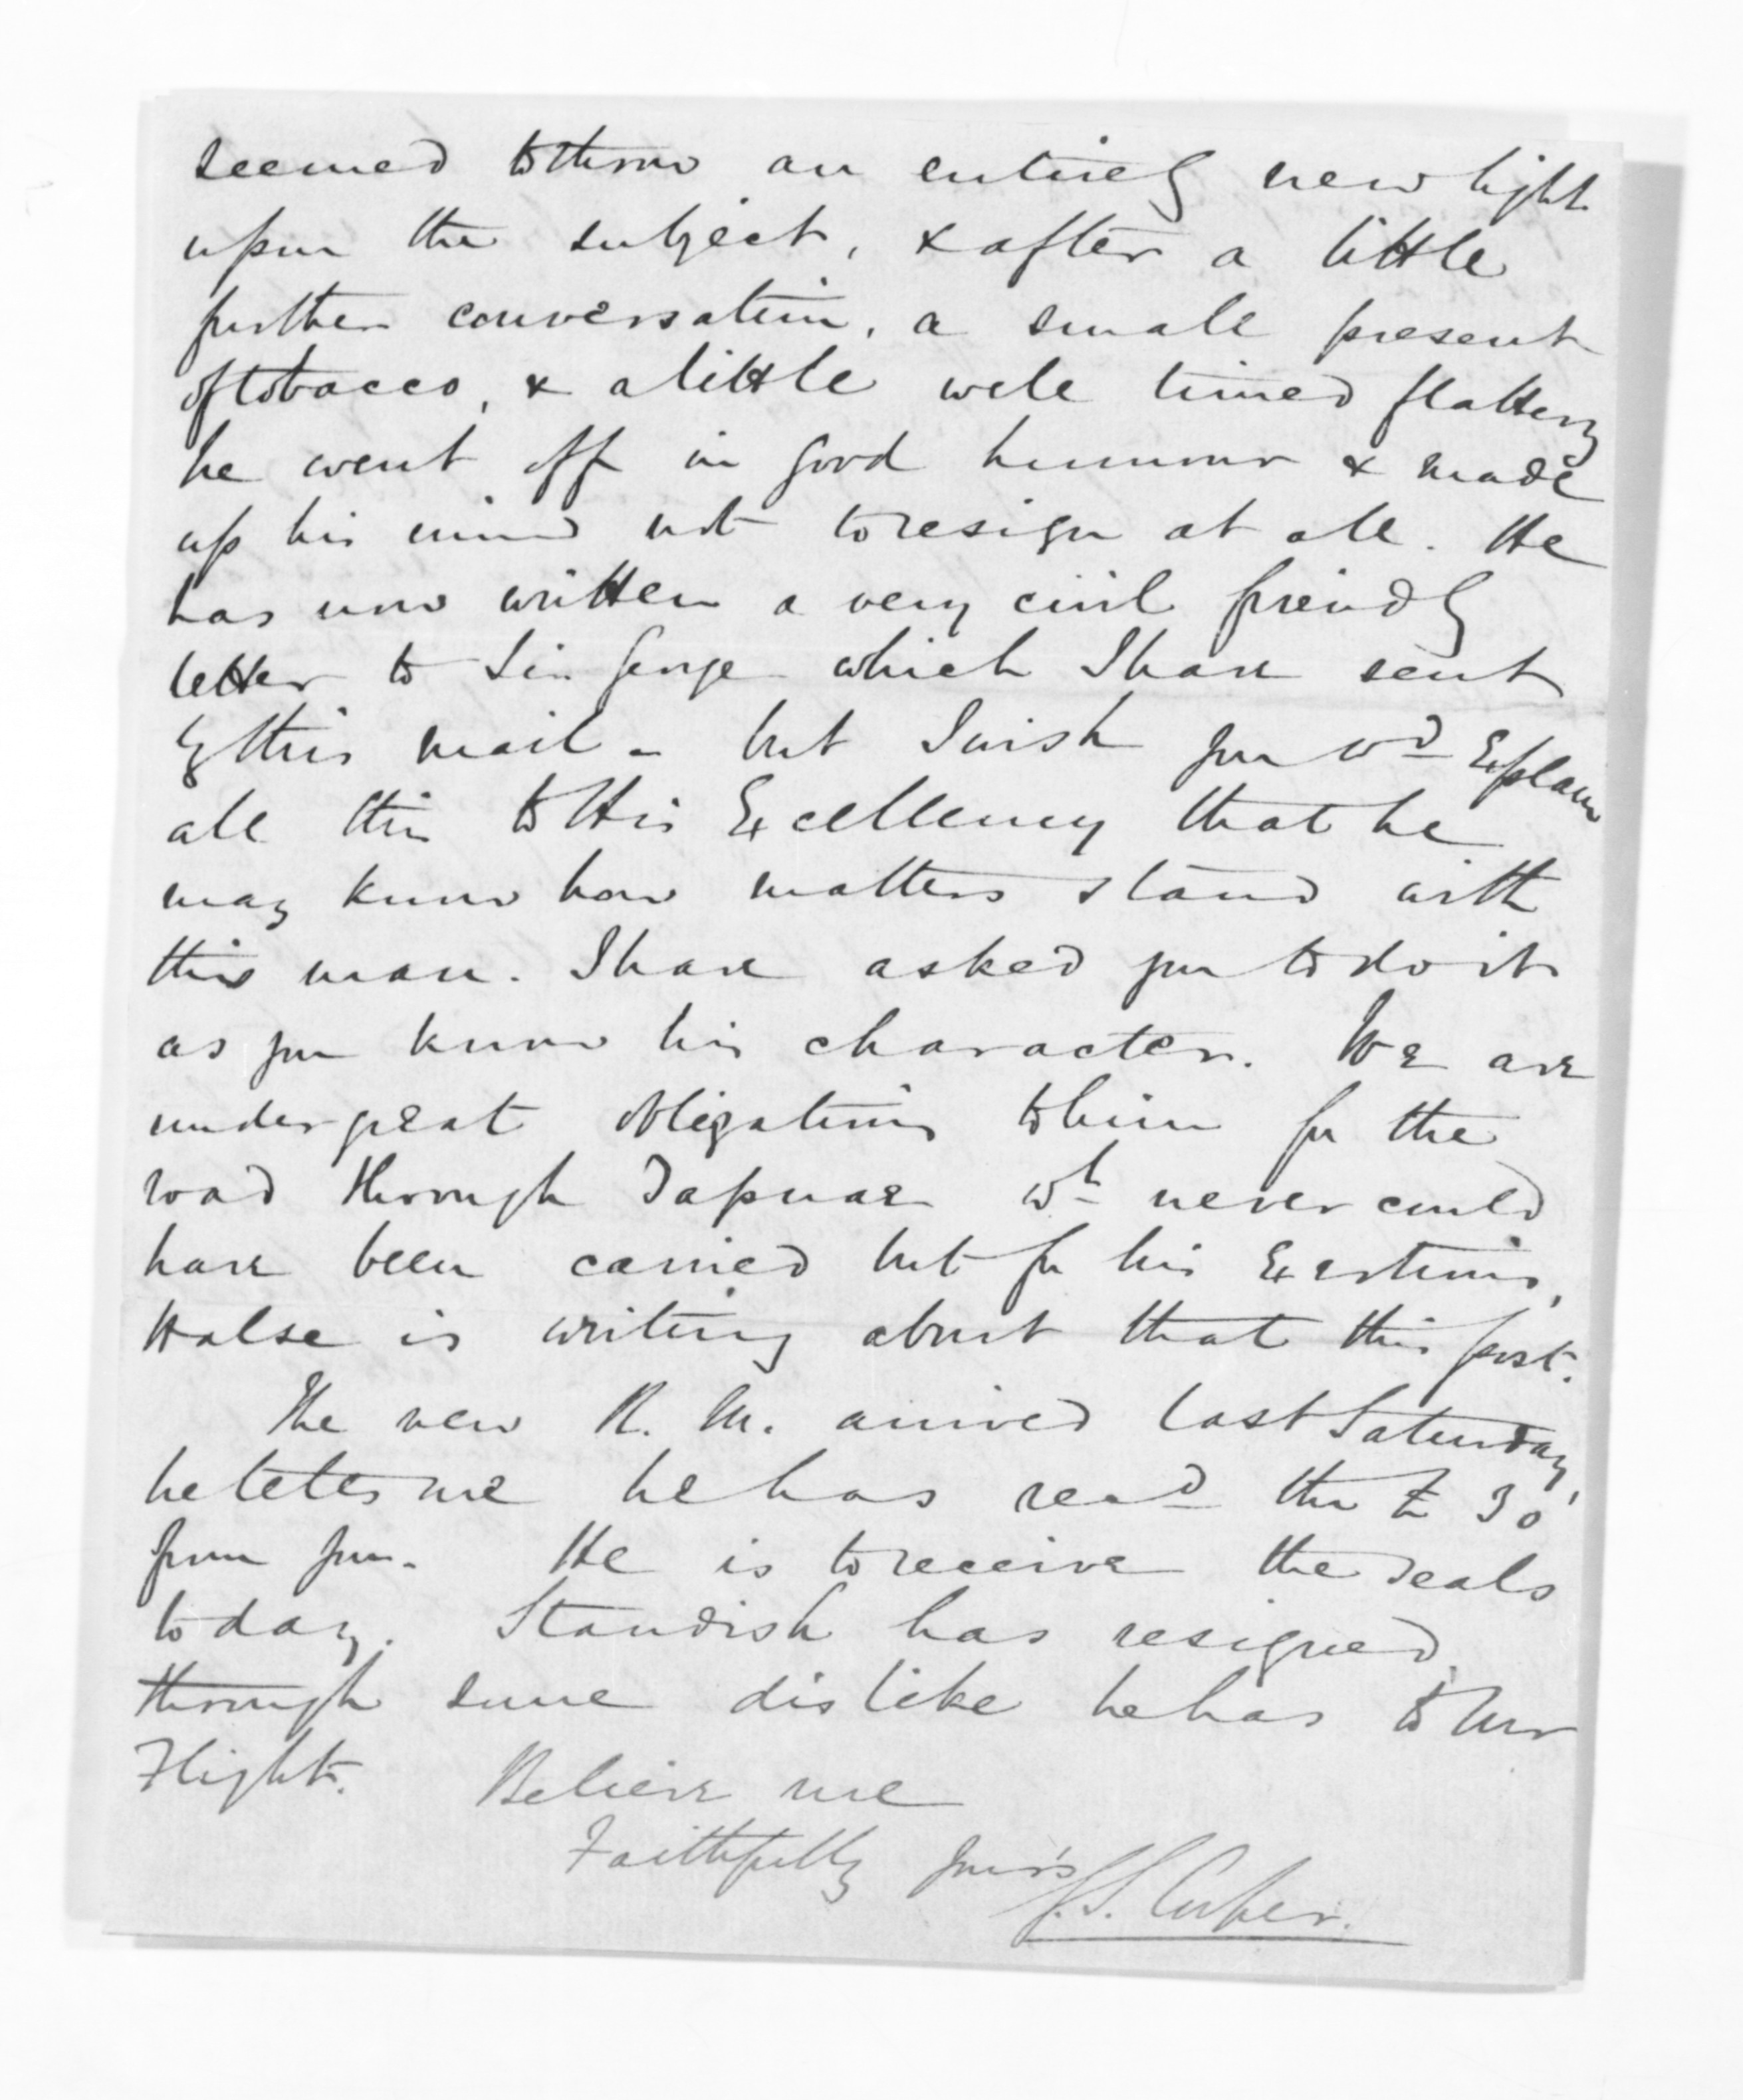 seemed to throw an entirely new light
upon the subject, & after a little
further conversation, a small present
of tobacco, & a little well timed flattery
he went off in good humour & made
up his mind not to resign at all. He
has now written a very civil friendly
letter to Sir George which I have sent
by this mail - but I wish you wd Explain
all this to His Excellency that he
may know how matters stand with
this man. I have asked you to do it
as you know his character. We are
under great obligations to him for the
road through Tapuae wh never could
have been carried but for his Exertions,
Halse is writing about that this post.
The new R. M. arrived last Saturday,
he tells me he has recd the £30
from you. He is to receive the seals
today. Standish has resigned
through some dislike he has to Mr
Flight. Believe me
Faithfully yours
G. S. Cooper.